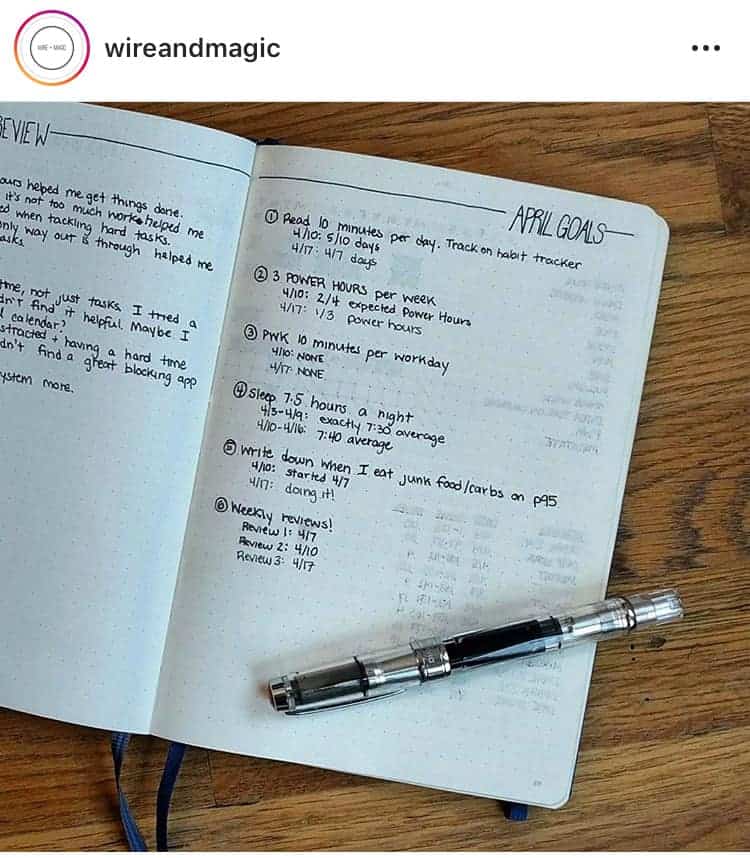 WIRE + MAGIC
wireandmagic
REVIEW
ours helped me get things done.
it's not too much work helped me
ed when tackling hard tasks.
only way out is through helped me
asks.
time, not just tasks. I tried a
dn't find it helpful. Maybe I
l calendar?
stracted + having a hard time
dn't find a great blocking app
ystem more.
APRIL GOALS
① Read 10 minutes per day. Track on habit tracker
4/10: 5/10 days
4/17: 4/7 days
② 3 POWER HOURS per week
4/10: 2/4 expected Power Hours
4/17: 1/3 power hours
③ PWK 10 minutes per workday
4/10: NONE
4/17: NONE
④ Sleep 7.5 hours a night
4/3-4/9: exactly 7:30 average
4/10-4/16: 7:40 average
⑤ Write down when I eat junk food/carbs on p95
4/10: started 4/7
4/17: doing it!
⑥ Weekly reviews!
Review 1: 4/7
Review 2: 4/10
Review 3: 4/17